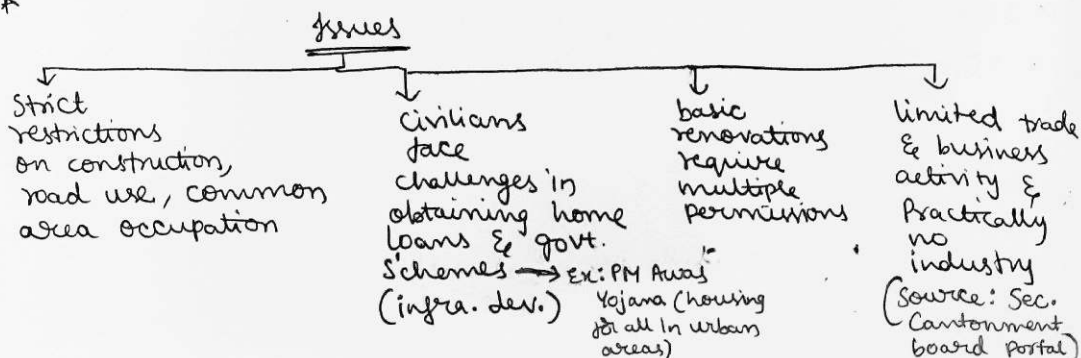 Issues
Strict
restrictions
on construction,
road use, common
area occupation
civilians
face
challenges in
obtaining home
loans & govt.
schemes → Ex: PM Awas
(infra. dev.) Yojana (housing
for all in urban
areas)
basic
renovations
require
multiple
permissions
limited trade
& business
activity &
Practically
no
industry
(Source: Sec.
Cantonment
board Portal)